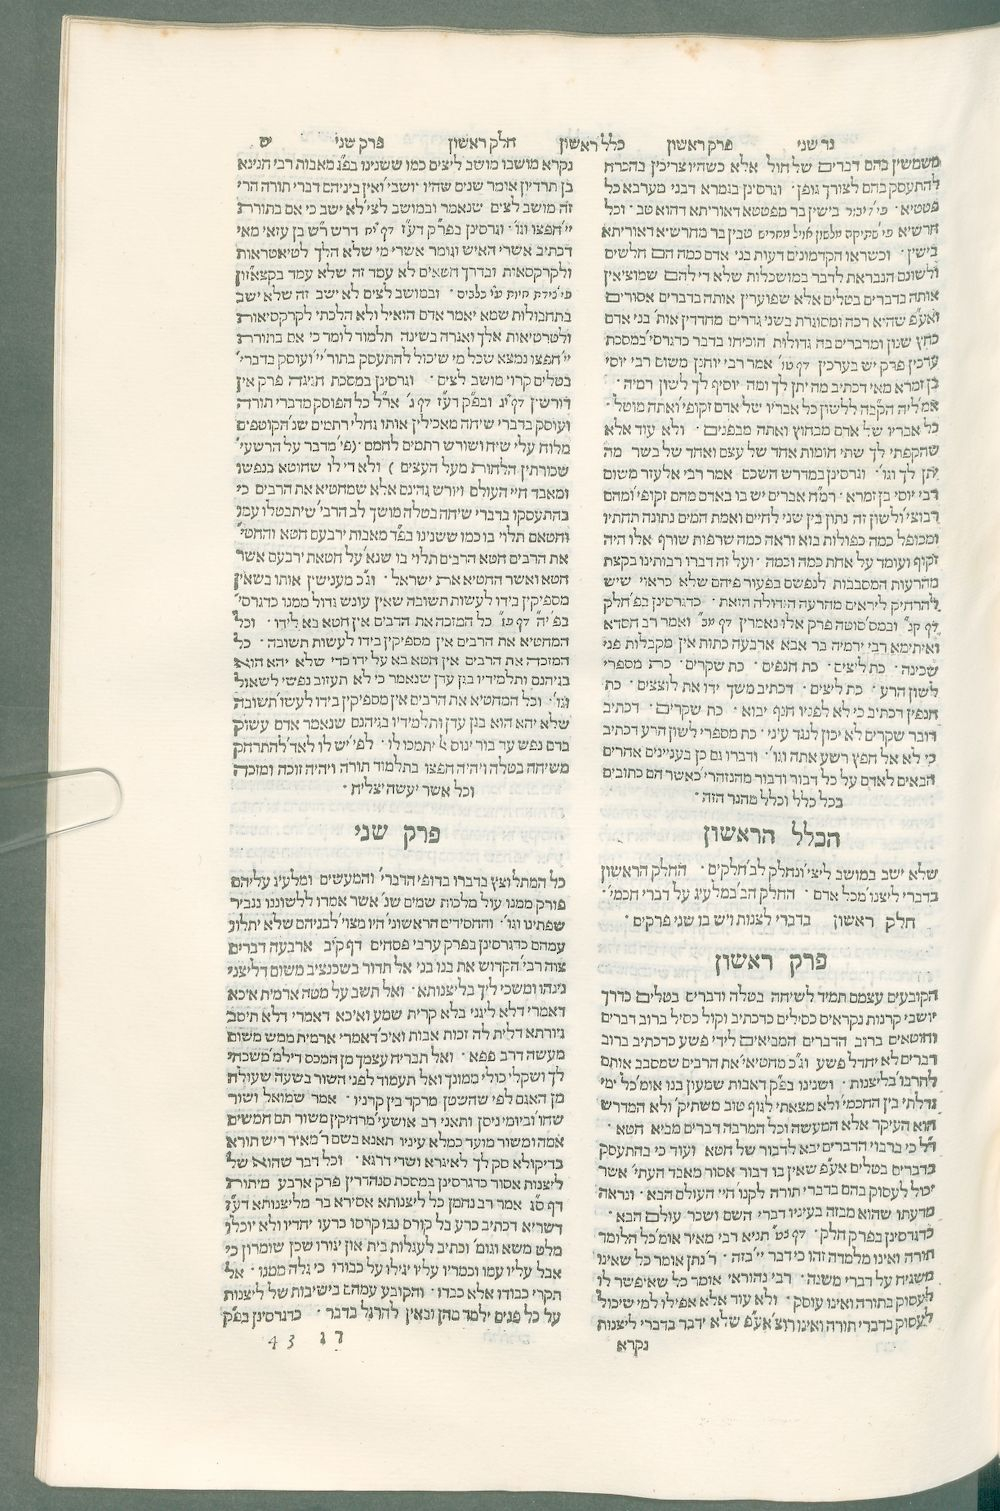 נר שני פרק ראשון כלל ראשון חלק ראשון פרק שני יט
משמשין בהם דברים של חול אלא כשהיו צריכין בהכרח
להתעסק בהם לצורך גופן · וגרסינן בגמרא דבני מערבא כל
פטטיא · פי' דיבור בישין בר מפטטא דאוריתא דהוא טב · וכל
חרשיא פי' שתיקה מלשון אויל מחריש טבין בר מחרשיא דאוריתא
בישין · וכשראו הקדמונים דעות בני אדם כמה הם חלשים
ולשונם הנבראת לדבר במושכלות שלא די להם שמוציאין
אותה בדברים בטלים אלא שפוערין אותה בדברים אסורים
ואע״פ שהיא רכה ומסוגרת בשני גדרים מחדדין אות' בני אדם
כחץ שנון ומרברים בה גדולות הוכיחו בדבר כדגרסי' במסכת
ערכין פרק יש בערכין דף טו' אמר רבי יוחנן משום רבי יוסי
בן זמרא מאי דכתיב מה יתן לך ומה יוסיף לך לשון רמיה ·
אמ' ליה הקב״ה ללשון כל אבריו של אדם זקופי' ואתה מוטל ·
כל אבריו של אדם מבחוץ ואתה מבפנים · ולא עוד אלא
שהקפתי לך שתי חומות אחד של עצם ואחד של בשר · מה
יתן לך וגו' · וגרסינן במדרש השכם אמר רבי אלעזר משום
רבי יוסי בן זמרא · רמ״ח אברים יש בו באדם מהם זקופי' ומהם
רבוצי' ולשון זה נתון בין שני לחיים ואמת המים נתונה תחתיו
ומכופל כמה כפולות בוא וראה כמה שרפות שורף אלו היה
זקוף ועומד על אחת כמה וכמה · ועל זה דברו רבותינו בקצת
מהרעות המסבבות לנפשם בפעור פיהם שלא כראוי שיש
להרחיק ליראים מהרעה הגדולה הזאת · כדגרסינן בפ' חלק
דף קג' ובמס' סוטה פרק אלו נאמרין דף מב' ואמר רב חסדא
ואיתימא רבי ירמיה בר אבא ארבעה כתות אין מקבלות פני
שכינה · כת ליצים · כת חנפים · כת שקרים · כת מספרי
לשון הרע · כת ליצים · דכתיב משך ידו את לוצצים · כת
חנפין דכתיב כי לא לפניו חנף יבוא · כת שקרים · דכתיב
דובר שקרים לא יכון לנגד עיני · כת מספרי לשון הרע דכתיב
כי לא אל חפץ רשע אתה וגו' · ודברו גם כן בעניינים אחרים
הבאים לאדם על כל דבור ודבור מהנזהרי' כאשר הם כתובים
בכל כלל וכלל מהנר הזה ·
הכלל הראשון
שלא ישב במושב ליצי' ונחלק לב' חלקים · החלק הראשון
בדברי ליצנו' מכל אדם · החלק הב' במלעיג על דברי חכמי' ·
חלק ראשון בדברי לצנות ויש בו שני פרקים ·
פרק ראשון
הקובעים עצמם תמיד לשיחה בטלה ודברים בטלים כדרך
יושבי קרנות נקראים כסילים כדכתיב וקול כסיל ברוב דברים
וחוטאים ברוב הדברים המביאים לידי פשע כדכתיב ברוב
דברים לא יחדל פשע וג״כ מחטיאי' את הרבים שמסבב אותם
להרבו' בליצנות · ושנינו בפ״ק דאבות שמעון בנו אומ' כל ימי
גדלתי בין החכמי' ולא מצאתי לגוף טוב משתיק' ולא המדרש
הוא העיקר אלא המעשה וכל המרבה דברים מביא חטא ·
ר״ל כי ברבוי הדברים יבא לדבור של חטא ועוד כי בהתעסק
בדברים בטלים אע״פ שאין בו דבור אסור מאבד העתי' אשר
יכול לעסוק בהם בדברי תורה לקנו' חיי העולם הבא · ונראה
מדעתו שהוא מבזה בעיניו דברי השם ושכר עולם הבא ·
כדגרסינן בפרק חלק · דף צט' תניא רבי מאיר אומ' כל הלומד
תורה ואינו מלמדה זהו כי דבר יי' בזה · ר' נתן אומר כל שאינו
משגיח על דברי משנה · רבי נהוראי אומר כל שאיפשר לו
לעסוק בתורה ואינו עוסק · ולא עוד אלא אפילו למי שיכול
לעסוק בדברי תורה ואינו רוצ' אע״פ שלא ידבר בדברי ליצנות
נקרא
נקרא מושבו מושב ליצים כמו ששנינו בפ״ג מאבות רבי חנינא
בן תרדיון אומר שנים שהיו יושבי' ואין ביניהם דברי תורה הרי
זה מושב לצים שנאמר ובמושב לצי' לא ישב כי אם בתורת
יי' חפצו וגו' · וגרסינן בפ״ק דע״ז דף יח דרש ר״ש בן עזאי מאי
דכתיב אשרי האיש וגומר אשרי מי שלא הלך לטיאטראות
ולקרקסאות ובדרך חטאים לא עמד זה שלא עמד בקצאזון
פי' צידת חיות עי' כלבים · ובמושב לצים לא ישב זה שלא ישב
בתחבולות שמא יאמר אדם הואיל ולא הלכתי לקרקסיאות
ולטרטיאות אלך ואגרה בשינה תלמוד לומר כי אם בתורת
יי' חפצו נמצא שכל מי שיכול להתעסק בתור' יי' ועוסק בדברי'
בטלים קרוי מושב לצים · וגרסינן במסכת חגיגה פרק אין
דורשין דף יב ובפ״ק דע״ז דף ג' אר״ל כל הפוסק מדברי תורה
ועוסק בדברי שיחה מאכילין אותו גחלי רתמים שנ' הקוטפים
מלוח עלי שיח ושורש רתמים לחמם · (פי' מדבר על הרשעי'
שכורתין הלחות מעל העצים) ולא די לו שחוטא בנפשו
ומאבד חיי העולם ויורש גהינם אלא שמחטיא את הרבים כי
בהתעסקו בדברי שיחה בטלה מושך לב הרבי' שיתבטלו עמו
וחטאם תלוי בו כמו ששנינו בפ״ה מאבות ירבעם חטא והחטי'
את הרבים חטא הרבים תלוי בו שנא' על חטאת ירבעם אשר
חטא ואשר החטיא את ישראל · וג״כ מענישין אותו בשאין
מספיקין בידו לעשות תשובה שאין עונש גדול ממנו כדגרסי'
בפ' י״ה דף פז' כל המזכה את הרבים אין חטא בא לידו · וכל
המחטיא את הרבים אין מספיקין בידו לעשות תשובה · כל
המזכה את הרבים אין חטא בא על ידו כדי שלא יהא הוא
בגיהנם ותלמידיו בגן עדן שנאמר כי לא תעזוב נפשי לשאול
וגו' · וכל המחטיא את הרבים אין מספיקין בידו לעשו' תשובה
שלא יהא הוא בגן עדן ותלמידיו בגיהנם שנאמר אדם עשוק
בדם נפש עד בור ינוס אל יתמכו לו · לפי' יש לו לאד' להתרחק
משיחה בטלה ויהיה חפצו בתלמוד תורה ויהיה זוכה ומזכה
וכל אשר יעשה יצליח ·
פרק שני
כל המתלוצץ בדברו בדופי הדברי' והמעשים ומלעיג עליהם
פורק ממנו עול מלכות שמים שנ' אשר אמרו ללשוננו נגביר
שפתינו וגו' · והחסידים הראשוני' היו מצוי' לבניהם שלא יתלוצ'
עמהם כדגרסינן בפרק ערבי פסחים דף קיב ארבעה דברים
צוה רבי' הקדוש את בניו בני אל תדור בשכנציב משום דליצני
נינהו ומשכי ליך בליצנותא · ואל תשב על מטה ארמית איכא
דאמרי דלא ליגני בלא קרית שמע ואיכא דאמרי דלא תיסב
גיורתא דלית לה זכות אבות ואיכ' דאמרי ארמית ממש משום
מעשה דרב פפא · ואל תבריח עצמך מן המכס דילמ' משכחי
לך ושקלי כולי ממונך ואל תעמוד לפני השור בשעה שעולה
מן האגם לפי שהשטן מרקד בין קרניו · אמר שמואל ושור
שחו' וביומי ניסן ותאני רב אושעי' מרחיקין משור תם חמשים
אמה ומשור מועד כמלא עיניו תאנא בשם ר' מאיר ריש תורא
בדיקולא סק לך לאיגרא ושדי דרגא · וכל דבר שהוא של
ליצנות אסור כדגרסינן במסכת סנהדרין פרק ארבע מיתות
דף סג אמר רב נחמן כל ליצנותא אסירא בר מליצנותא דע״ז
דשריא דכתיב כרע בל קורס נבו קרסו כרעו יחדיו ולא יוכלו
מלט משא וגומ' וכתיב לעגלות בית און יגורו שכן שומרון כי
אבל עליו עמו וכמריו עליו יגילו על כבודו כי גלה ממנו · אל
תקרי כבודו אלא כבדו · והקובע עמהם בישיבות של ליצנות
על כל פנים ילמד מהן ובאין להרגל בדבר · כדגרסינן בפ״ק
ד ג 43